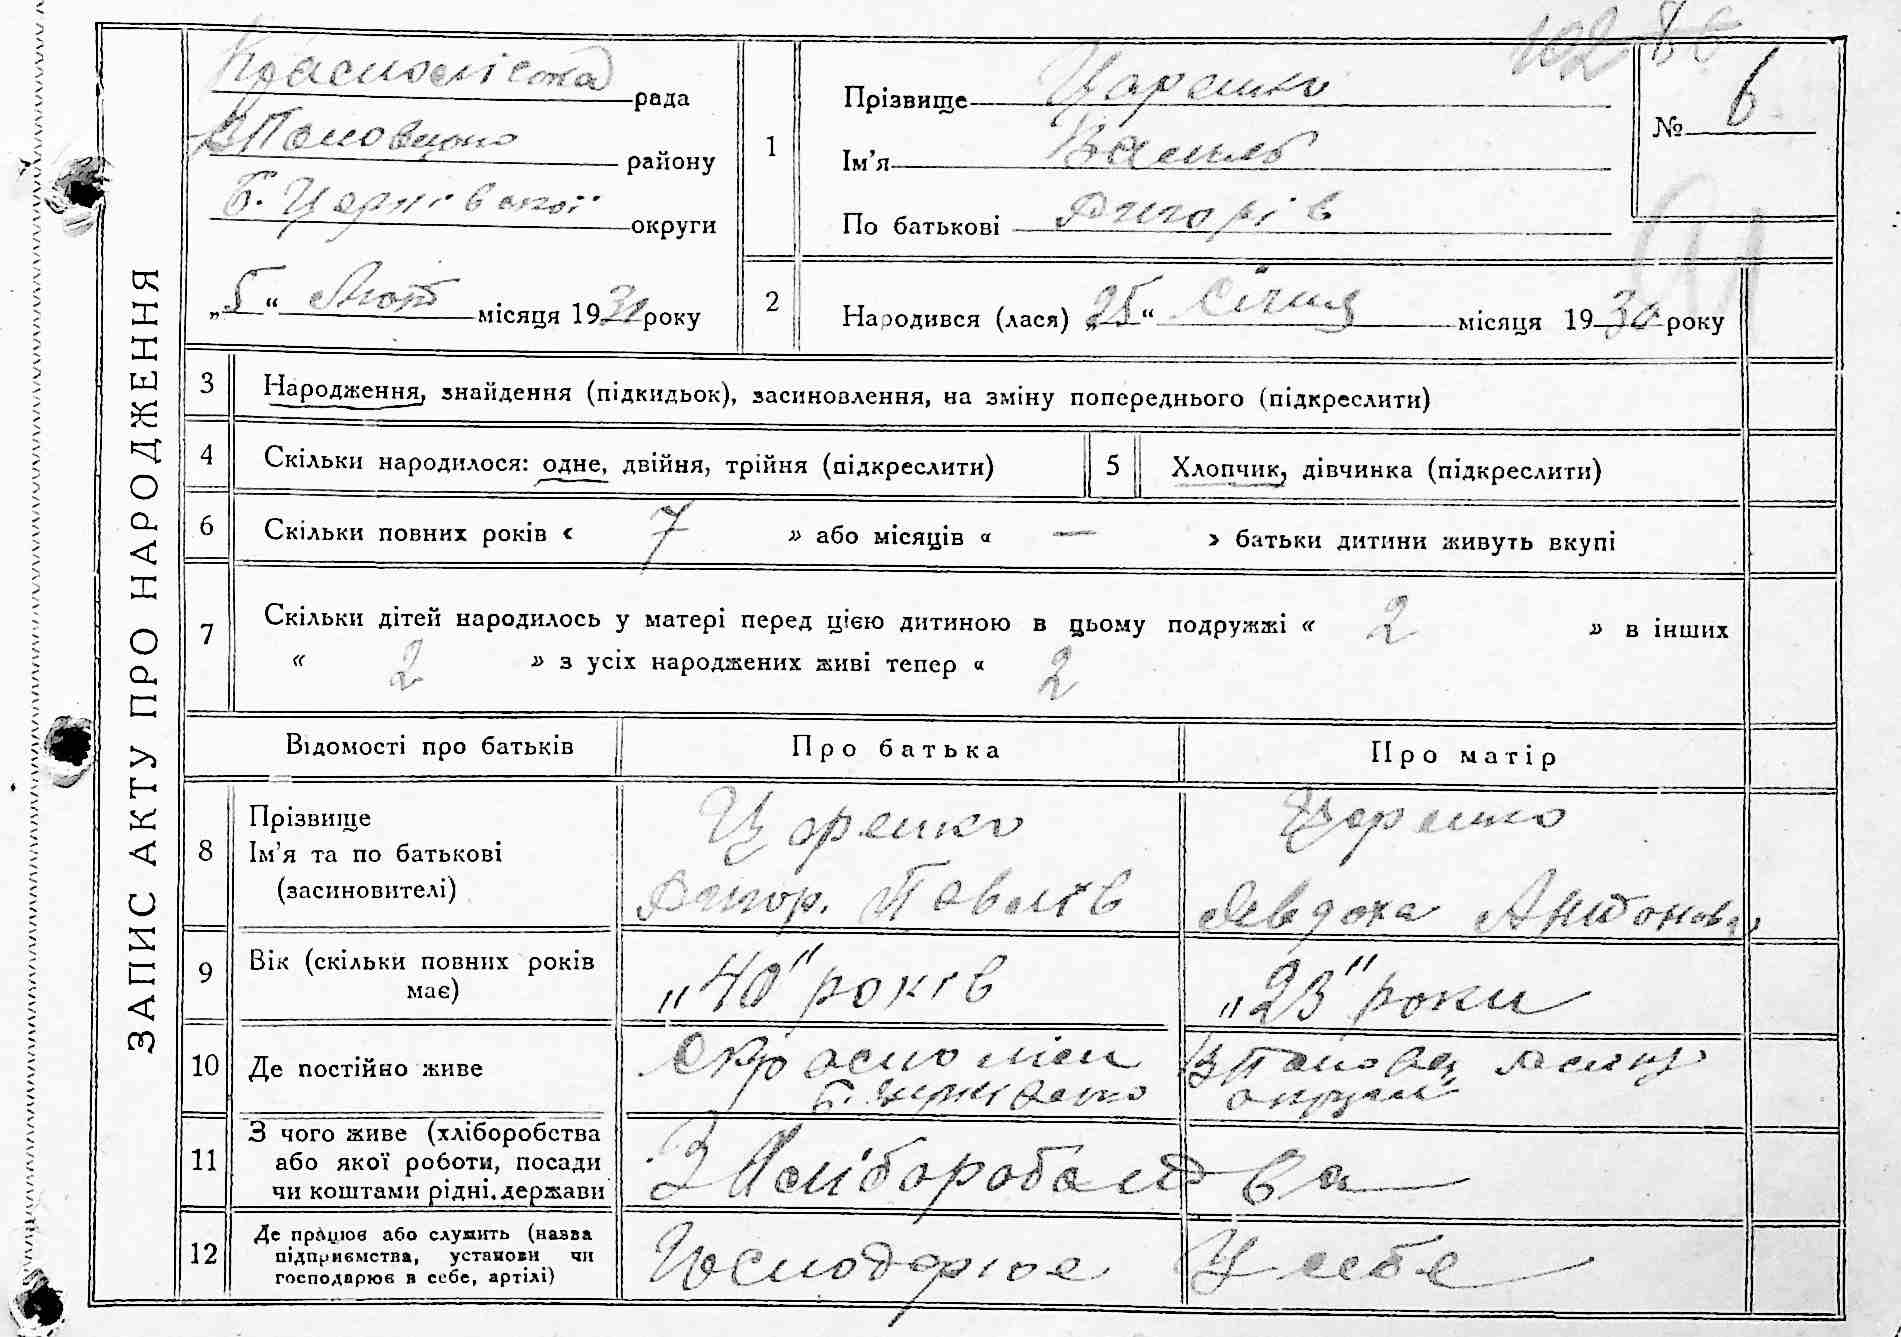 ЗАПИС АКТУ ПРО НАРОДЖЕННЯ
рада
району
Б. Церківської округи
„5“ Лют місяця 1930 року
102
1
Прізвище Царенко
Ім'я Василь
По батькові Григорів
№ 6
2
Народився (лася) „25“ Січня місяця 1930 року
3 Народження, знайдення (підкидьок), засиновлення, на зміну попереднього (підкреслити)
4 Скільки народилося: одне, двійня, трійня (підкреслити)
5 Хлопчик, дівчинка (підкреслити)
6 Скільки повних років « 7 » або місяців « — » батьки дитини живуть вкупі
7 Скільки дітей народилось у матері перед цією дитиною в цьому подружжі « 2 » в інших
« 2 » з усіх народжених живі тепер « 2
Відомості про батьків Про батька Про матір
8 Прізвище
Ім'я та по батькові
(засиновителі)
Царенко
Григор. Павлів
Царенко
Явдоха Антонова
9 Вік (скільки повних років
має)
„40“ років
„23“ роки
10 Де постійно живе
Б. Церківсько округи
11 З чого живе (хліборобства
або якої роботи, посади
чи коштами рідні, держави
З Хліборобства
12 Де працює або служить (назва
підприємства, установи чи
господарює в себе, артілі)
Господарює У себе